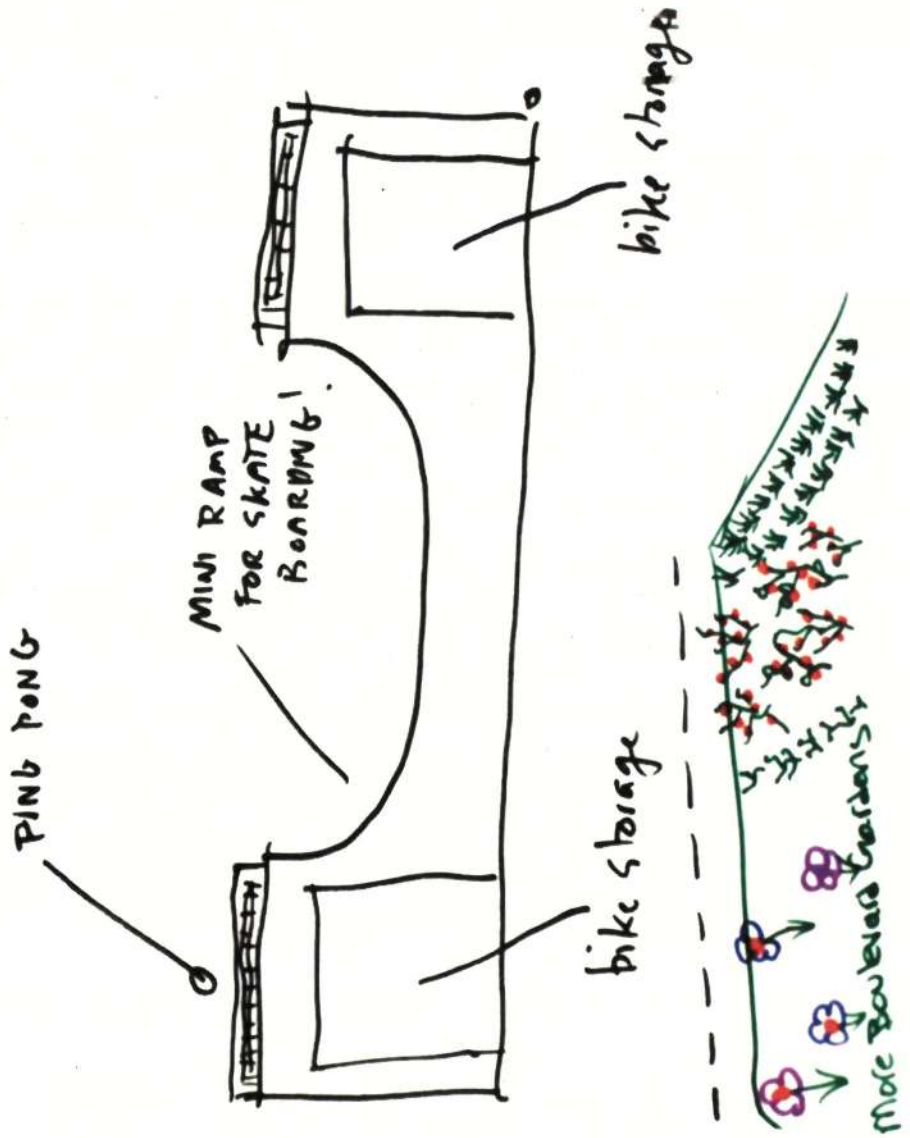 PING PONG
MINI RAMP
FOR SKATE
BOARDING!
bike storage
bike storage
More Boulevard Gardens